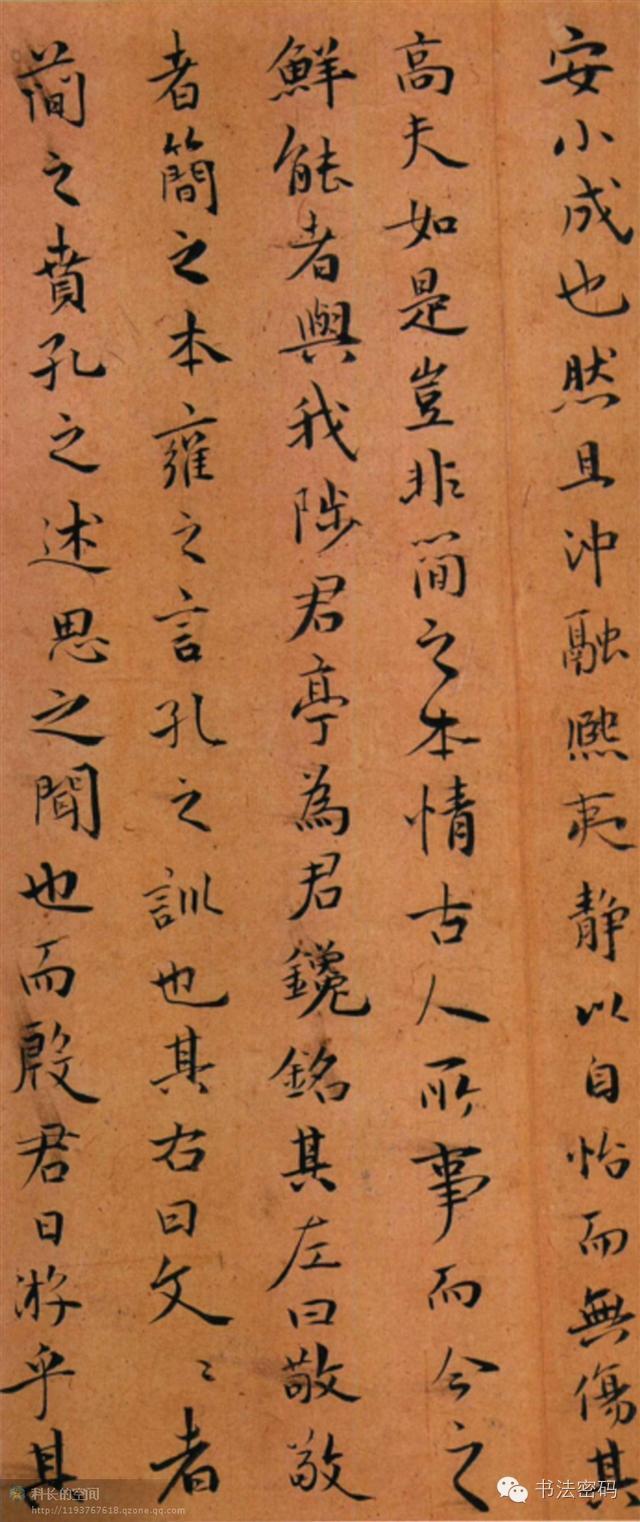 安小成也然且沖融熙夷靜以自怡而無傷其
高夫如是豈非簡之本情古人所事而今之
鮮能者與我陟君亭為君鑱銘其左曰敬敬
者簡之本雍之言孔之訓也其右曰文〻者
簡之賁孔之述思之聞也而殷君日游乎其
科长的空间
http://1193767618.qzone.qq.com
书法密码